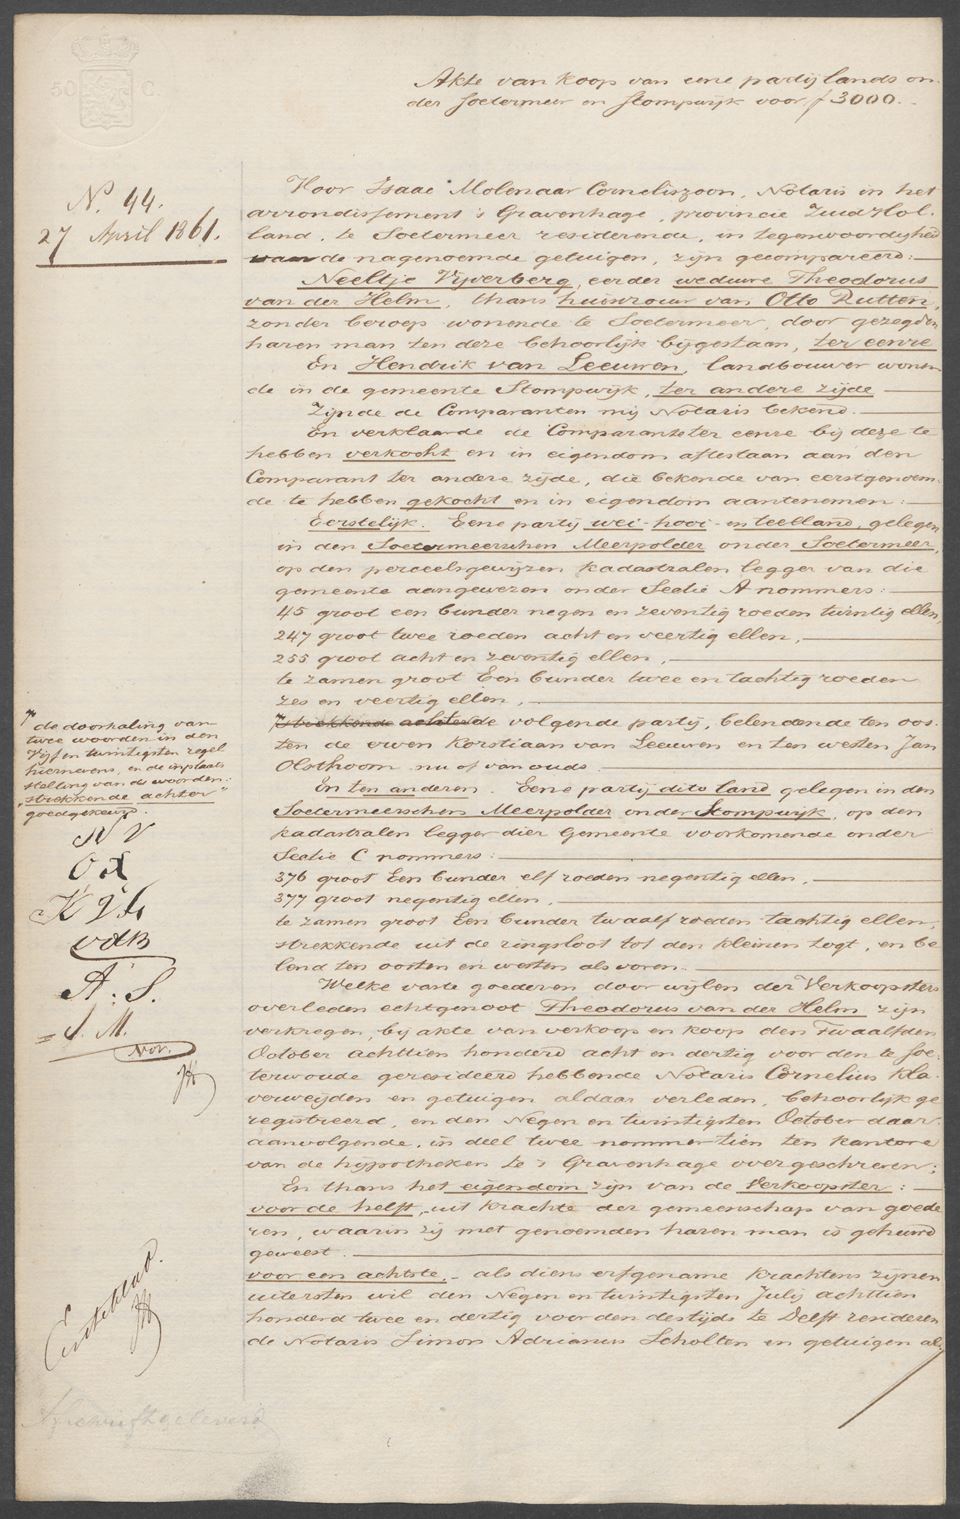 50 C.
Akte van koop van eene partij lands on-
der Soetermeer en Stompwijk voor ƒ 3000.-
N. 44.
27 April 1861.
Voor Isaac Molenaar Corneliszoon, Notaris in het
arrondissement 's Gravenhage, provincie Zuid Hol-
land, te Soetermeer resideerende, in tegenwoordigheid
van de nagenoemde getuigen, zijn gecompareerd:
Neeltje Vijverberg, eerder weduwe Theodorus
van der Helm, thans huisvrouw van Otto Rutten,
zonder beroep wonende te Soetermeer, door gezegden
haren man ten deze behoorlijk bijgestaan, ter eenre
En Hendrik van Leeuwen, landbouwer wonen-
de in de gemeente Stompwijk, ter andere zijde
Zijnde de Comparanten mij Notaris bekend.
En verklaarde de Comparante ter eenre bij deze te
hebben verkocht en in eigendom aftestaan aan den
Comparant ter andere zijde, die bekende van eerstgenoem-
de te hebben gekocht en in eigendom aantenemen:
Eerstelijk. Eene partij wei- hooi- en teelland, gelegen
in den Soetermeerschen Meerpolder onder Soetermeer,
op den perceelsgewijzen kadastralen legger van die
gemeente aangewezen onder Sectie A nommers:
45 groot een bunder negen en zeventig roeden twintig ellen,
247 groot twee roeden acht en veertig ellen,
255 groot acht en zeventig ellen,
te zamen groot Een bunder twee en tachtig roeden
zes en veertig ellen,
strekkende achter de volgende partij, belendende ten oos-
ten de erven Korstiaan van Leeuwen en ten westen Jan
Olsthoorn nu of van ouds.
En ten anderen. Eene partij dito land gelegen in den
Soetermeerschen Meerpolder onder Stompwijk, op den
kadastralen legger dier Gemeente voorkomende onder
Sectie C nommers:
376 groot Een bunder elf roeden negentig ellen,
377 groot negentig ellen,
te zamen groot Een bunder twaalf roeden tachtig ellen,
strekkende uit de ringsloot tot den kleinen togt, en be-
lend ten oosten en westen als voren.
Welke vaste goederen door wijlen der Verkoopsters
overleden echtgenoot Theodorus van der Helm zijn
verkregen, bij akte van verkoop en koop den Twaalfden
October achttien honderd acht en dertig voor den te Soe-
terwoude geresideerd hebbende Notaris Cornelius Kla-
verweijden en getuigen aldaar verleden, behoorlijk ge
registreerd, en den Negen en twintigsten October daar-
aanvolgende, in deel twee nommer tien ten kantore
van de hypotheken te 's Gravenhage overgeschreven;
En thans het eigendom zijn van de Verkoopster:
voor de helft, uit krachte der gemeenschap van goede
ren, waarin zij met genoemden haren man is gehuwd
geweest.
voor een achtste, - als diens erfgename krachtens zijnen
uitersten wil den Negen en twintigsten Julij achttien
honderd twee en dertig voor den destijds te Delft resideren
de Notaris Simon Adrianus Scholten en getuigen al-
de doorhaling van
twee woorden in den
Vijf en twintigsten regel
hiernevens, en de inplaats
stelling van de woorden:
"strekkende achter"
goedgekeurd.
N V
O R
H V L
vdB
A. S.
I. M.
Not.
Eerste blad.
Afschrift geleverd